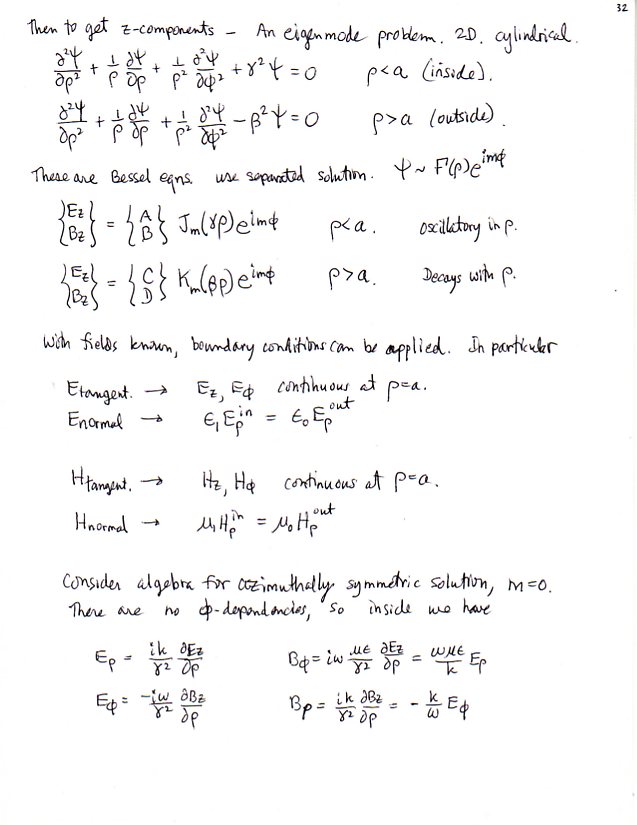 32
Then to get z-components – An eigenmode problem. 2D. cylindrical.
∂²Ψ/∂ρ² + 1/ρ ∂Ψ/∂ρ + 1/ρ² ∂²Ψ/∂φ² + γ²Ψ = 0 ρ<a (inside).
∂²Ψ/∂ρ² + 1/ρ ∂Ψ/∂ρ + 1/ρ² ∂²Ψ/∂φ² − β²Ψ = 0 ρ>a (outside).
These are Bessel eqns. use separated solution. Ψ ~ F(ρ)e^{imφ}
{Ez Bz} = {A B} Jm(γρ)e^{imφ} ρ<a. Oscillatory in ρ.
{Ez Bz} = {C D} Km(βρ)e^{imφ} ρ>a. Decays with ρ.
With fields known, boundary conditions can be applied. In particular
Etangent. → Ez, Eφ continuous at ρ=a.
Enormal → ϵ₁Eρ^{in} = ϵ₀Eρ^{out}
Htangent. → Hz, Hφ continuous at ρ=a.
Hnormal → μ₁Hρ^{in} = μ₀Hρ^{out}
Consider algebra for azimuthally symmetric solution, m=0.
There are no φ-dependencies, so inside we have
Eρ = ik/γ² ∂Ez/∂ρ Bφ = iω μϵ/γ² ∂Ez/∂ρ = ωμϵ/k Eρ
Eφ = −iω/γ² ∂Bz/∂ρ Bρ = ik/γ² ∂Bz/∂ρ = − k/ω Eφ